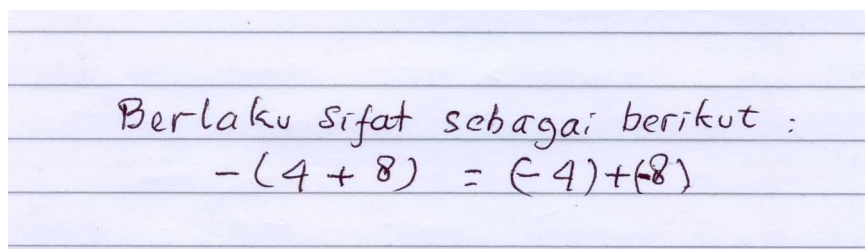 Berlaku sifat sebagai berikut :
-(4 + 8) = (-4)+(-8)